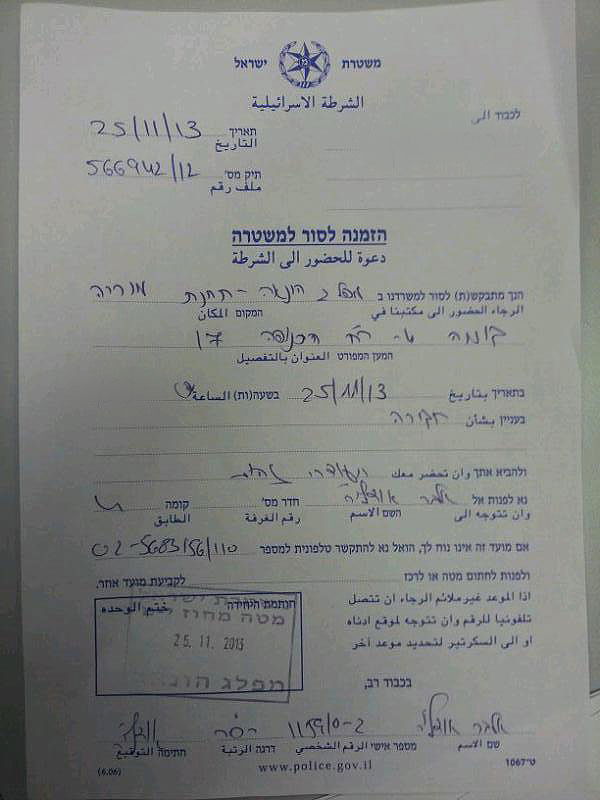 משטרת ישראל
الشرطة الاسرائيلية
לכבוד الى
תאריך 25/11/13
التاريخ
תיק מס' 566942/12
ملف رقم
הזמנה לסור למשטרה
دعوة للحضور الى الشرطة
הנך מתבקש(ת) לסור למשרדנו ב תחנת מוריה
الرجاء الحضور الى مكتبنا في המקום المكان
קומה 17
המען המפורט العنوان بالتفصيل
בתאריך بتاريخ 25/11/13 בשעה(ות) الساعة
בעניין بشأن חקירה
ולהביא אתך وان تحضر معك
נא לפנות אל חדר מס' קומה
وان تتوجه الى השם الاسم رقم الغرفة الطابق
אם מועד זה אינו נוח לך, הואל נא להתקשר טלפונית למספר 02-5683156/110
ולפנות לחתום מטה או לרכז לקביעת מועד אחר.
اذا الموعد غير ملائم الرجاء ان تتصل
تلفونيا للرقم وان تتوجه لموقع ادناه
او الى السكرتير لتحديد موعد آخر
חותמת היחידה ختم الوحده
מטה מחוז
25.11.2013
מפלג
בכבוד רב,
שם الاسم מספר אישי الرقم الشخصي דרגה الرتبة חתימה التوقيع
(6.06) www.police.gov.il ט״1067